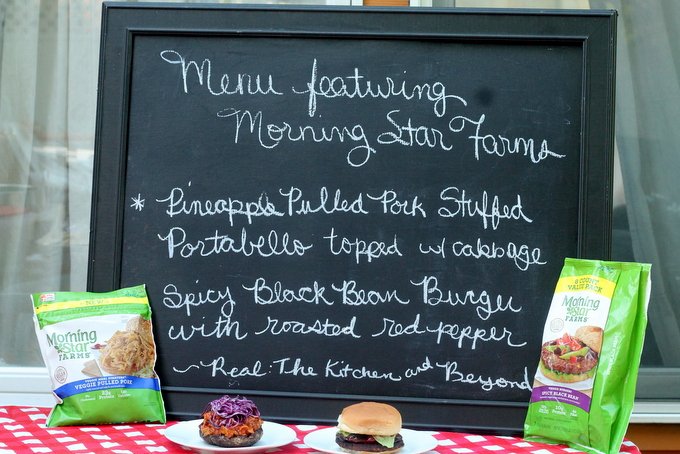 Menu featuring
Morning Star Farms
* Pineapple Pulled Pork Stuffed
Portabello topped w/ cabbage
Spicy Black Bean Burger
with roasted red pepper
~ Real: The Kitchen and Beyond
Morning
Star
FARMS
VEGGIE PULLED PORK
8 COUNT
VALUE PACK
Morning
Star
FARMS
SPICY BLACK BEAN